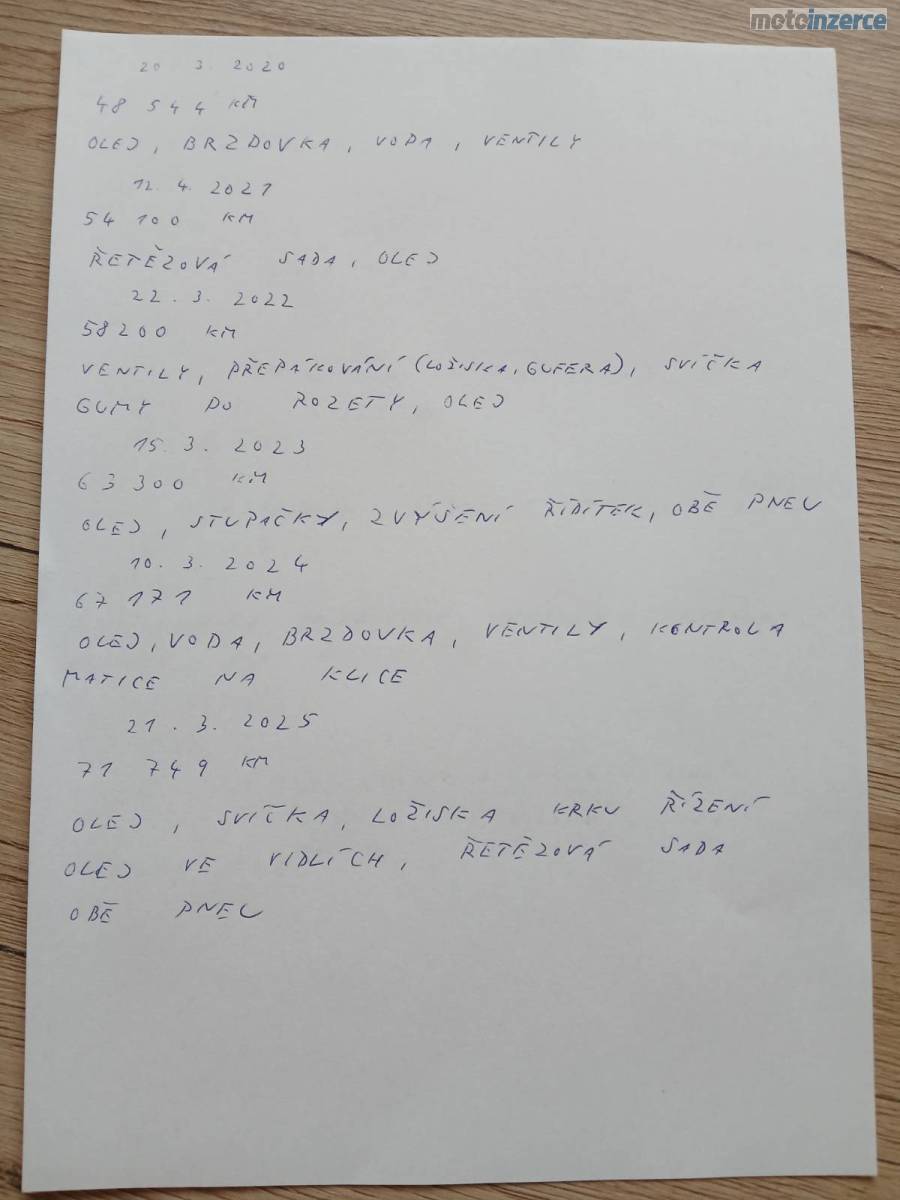 motoinzerce
20 3. 2020
48 544 KM
OLEJ, BRZDOVKA, VODA, VENTILY
12. 4. 2021
54 100 KM
ŘETĚZOVÁ SADA, OLEJ
22. 3. 2022
58200 KM
VENTILY, PŘEPÁKOVÁNÍ (LOŽISKA, GUFERA), SVÍČKA
GUMY DO ROZETY, OLEJ
15. 3. 2023
63 300 KM
OLEJ, STUPAČKY, ZVÝŠENÍ ŘÍDÍTEK, OBĚ PNEU
10. 3. 2024
67 171 KM
OLEJ, VODA, BRZDOVKA, VENTILY, KONTROLA
MATICE NA KLICE
21. 3. 2025
71 749 KM
OLEJ, SVÍČKA, LOŽISKA KRKU ŘÍZENÍ
OLEJ VE VIDLÍCH, ŘETĚZOVÁ SADA
OBĚ PNEU